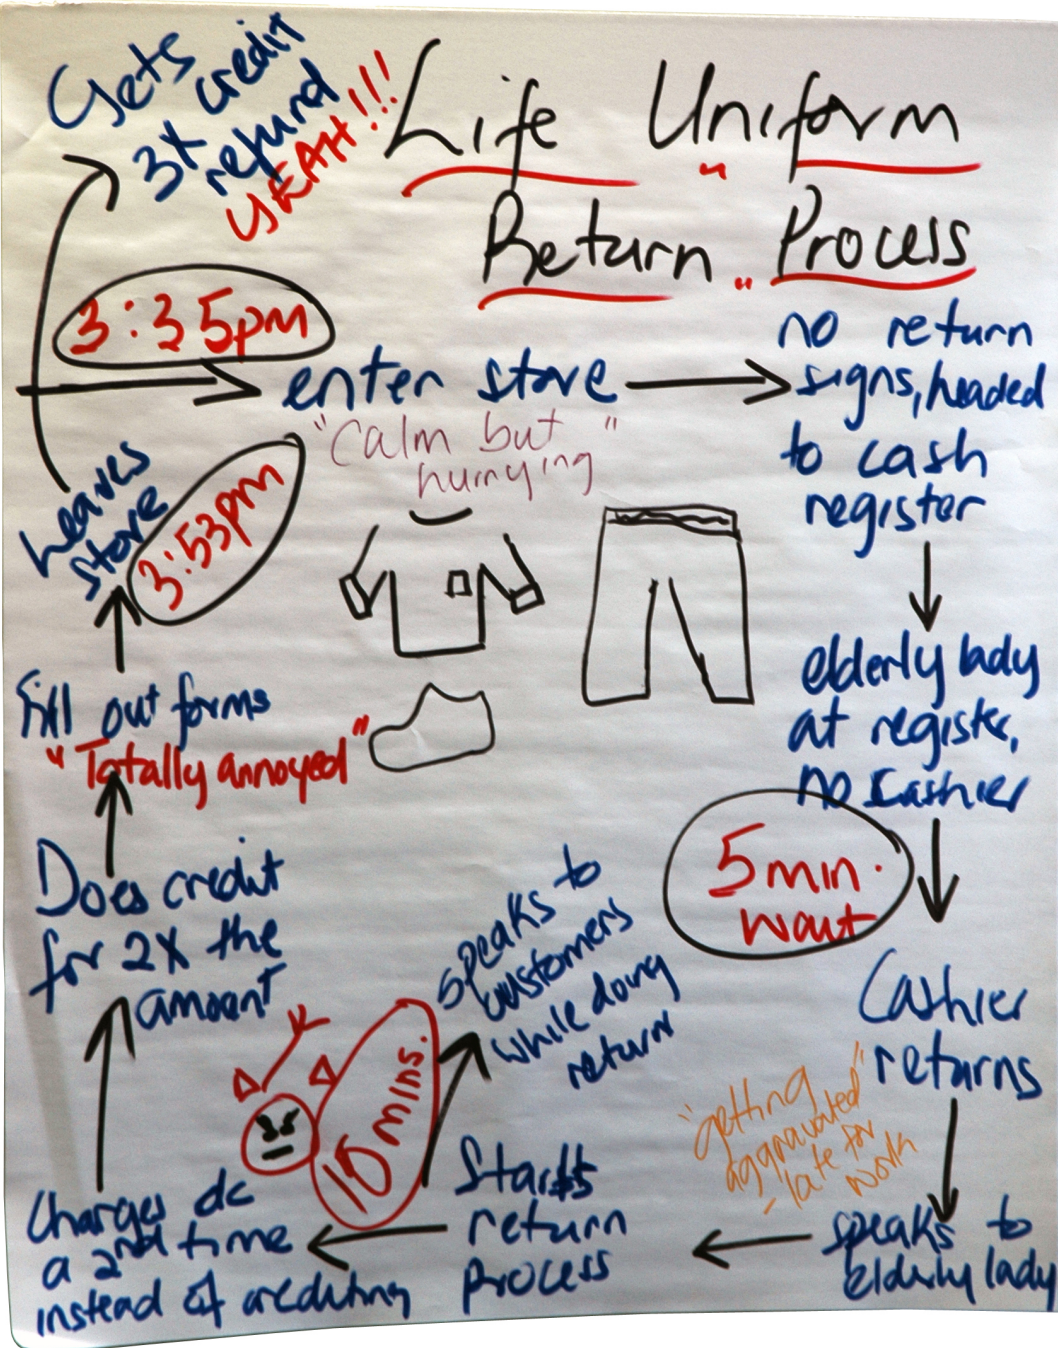 Life Uniform
"Return" Process
3:35pm
enter store
"calm but
hurrying"
no return
signs, headed
to cash
register
elderly lady
at register,
no cashier
5 min.
wait
Cashier
returns
"getting
aggravated"
- late for
work
speaks to
elderly lady
Starts
return
process
speaks to
customers
while doing
return
10 mins.
Charges dc
a 2nd time
instead of crediting
Does credit
for 2X the
amount
Fill out forms
"Totally annoyed"
Leaves
store
3:53pm
Gets
3x credit
refund
YEAH!!!